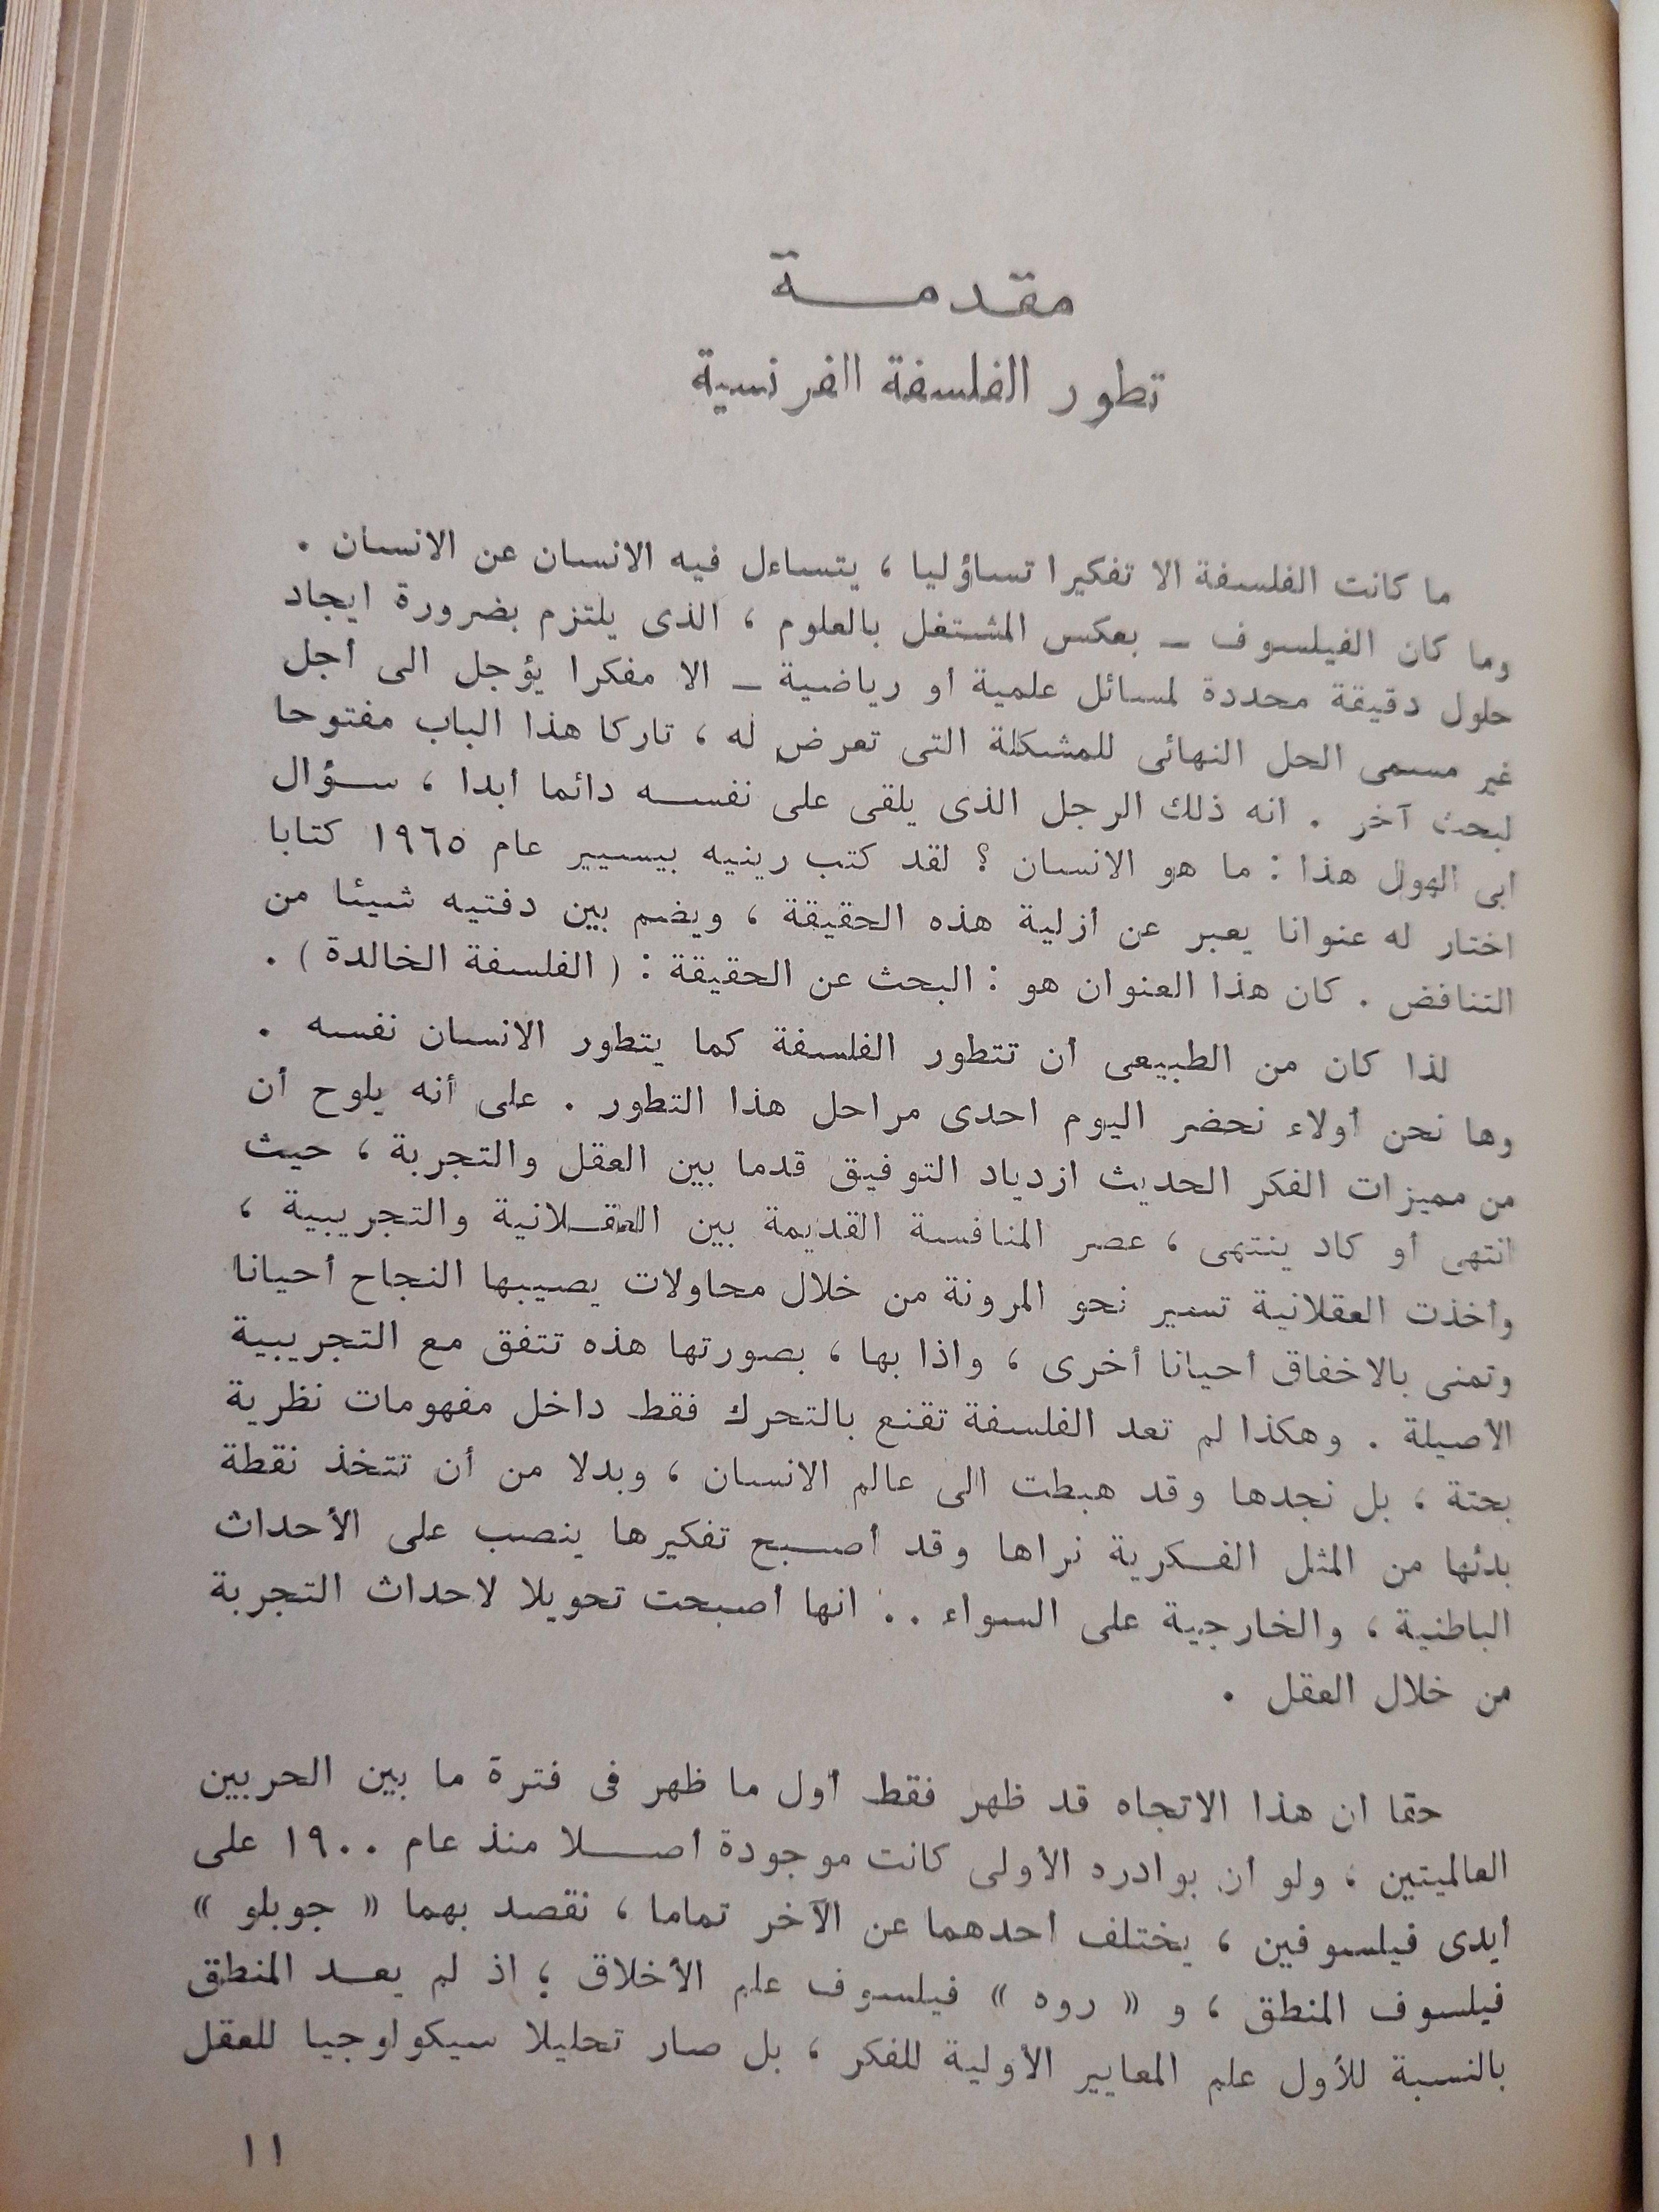 مقدمة
تطور الفلسفة الفرنسية
ما كانت الفلسفة الا تفكيرا تساؤليا ، يتساءل فيه الانسان عن الانسان .
وما كان الفيلسوف ــ بعكس المشتغل بالعلوم ، الذى يلتزم بضرورة ايجاد
حلول دقيقة محددة لمسائل علمية أو رياضية ــ الا مفكرا يؤجل الى أجل
غير مسمى الحل النهائى للمشكلة التى تعرض له ، تاركا هذا الباب مفتوحا
لبحث آخر . انه ذلك الرجل الذى يلقى على نفسه دائما أبدا ، سؤال
ابى الهول هذا : ما هو الانسان ؟ لقد كتب رينيه بيسيير عام ١٩٦٥ كتابا
اختار له عنوانا يعبر عن أزلية هذه الحقيقة ، ويضم بين دفتيه شيئا من
التنافض . كان هذا العنوان هو : البحث عن الحقيقة : ( الفلسفة الخالدة ) .
لذا كان من الطبيعى أن تتطور الفلسفة كما يتطور الانسان نفسه .
وها نحن أولاء نحضر اليوم احدى مراحل هذا التطور . على أنه يلوح أن
من مميزات الفكر الحديث ازدياد التوفيق قدما بين العقل والتجربة ، حيث
انتهى أو كاد ينتهى ، عصر المنافسة القديمة بين العقلانية والتجريبية ،
وأخذت العقلانية تسير نحو المرونة من خلال محاولات يصيبها النجاح أحيانا
وتمنى بالاخفاق أحيانا أخرى ، واذا بها ، بصورتها هذه تتفق مع التجريبية
الأصيلة . وهكذا لم تعد الفلسفة تقنع بالتحرك فقط داخل مفهومات نظرية
بحتة ، بل نجدها وقد هبطت الى عالم الانسان ، وبدلا من أن تتخذ نقطة
بدئها من المثل الفكرية نراها وقد أصبح تفكيرها ينصب على الأحداث
الباطنية ، والخارجية على السواء .. انها أصبحت تحويلا لاحداث التجربة
من خلال العقل .
حقا ان هذا الاتجاه قد ظهر فقط أول ما ظهر فى فترة ما بين الحربين
العالميتين ، ولو أن بوادره الأولى كانت موجودة أصلا منذ عام ١٩٠٠ على
أيدى فيلسوفين ، يختلف أحدهما عن الآخر تماما ، نقصد بهما « جوبلو »
فيلسوف المنطق ، و « روه » فيلسوف علم الأخلاق ؛ اذ لم يعد المنطق
بالنسبة للأول علم المعايير الأولية للفكر ، بل صار تحليلا سيكولوجيا للعقل
١١